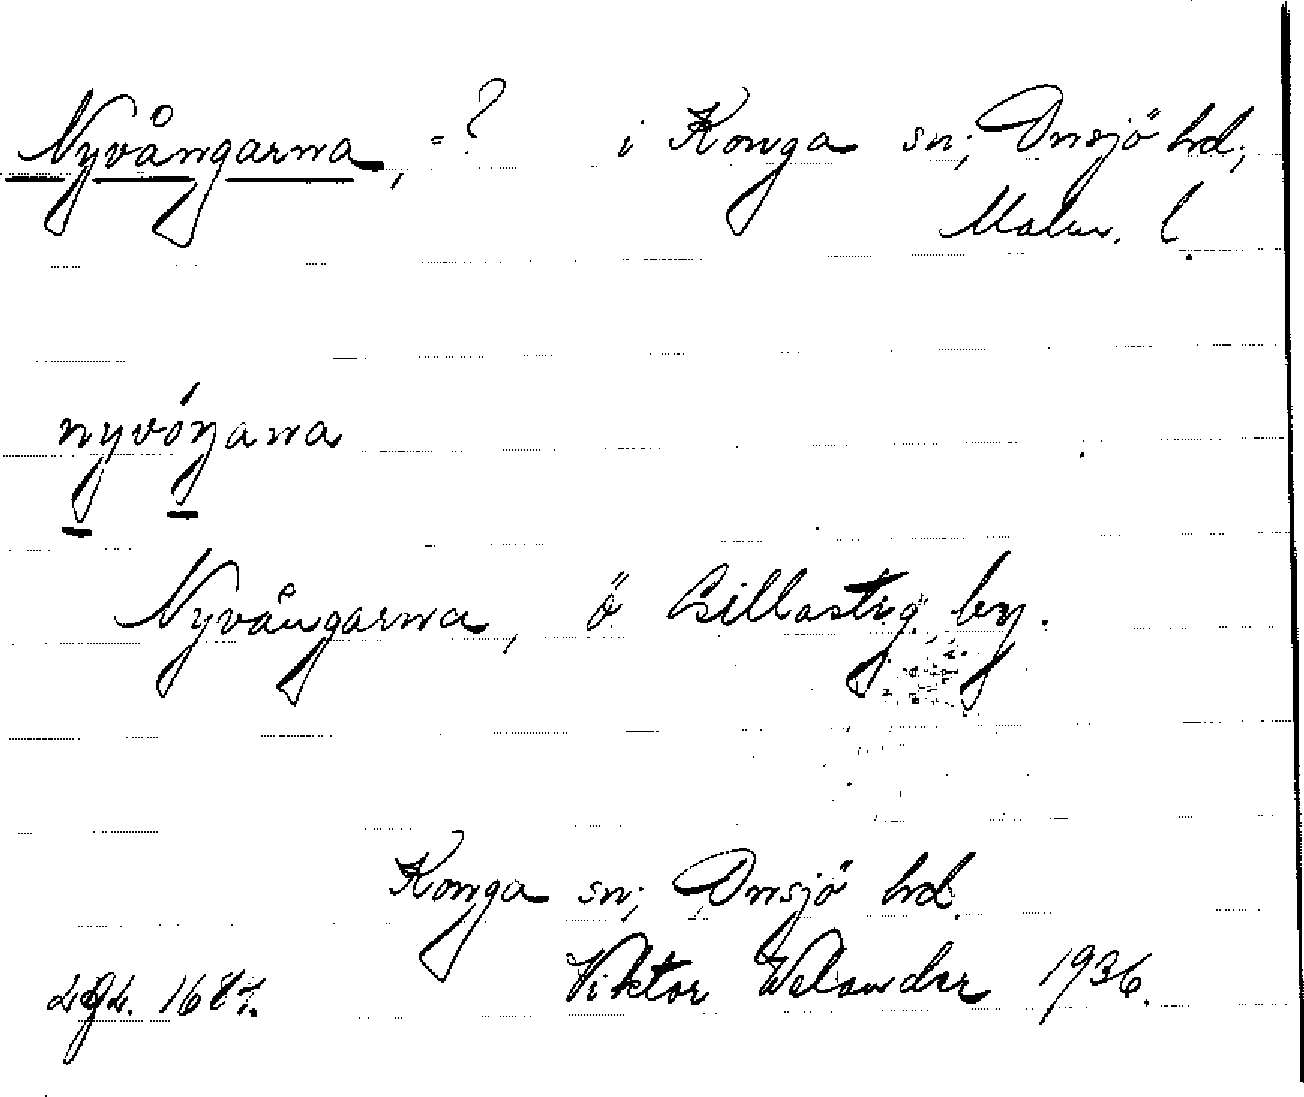 Nyvångarna, =? i Konga sn; Onsjö hd;
Malm. l.
nyvóŋarna
Nyvångarna, ö Gillastig by.
Konga sn; Onsjö hd.
Viktor Welander 1936.
1687.